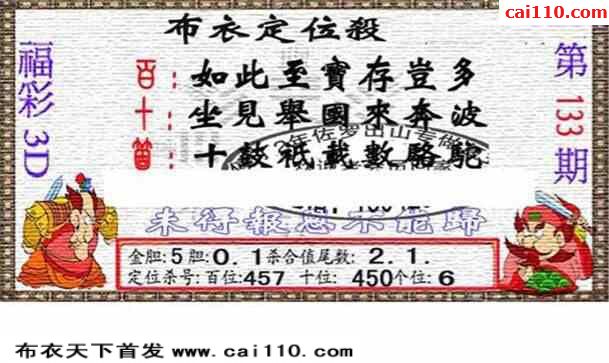 cai110.com
布衣定位殺
福彩3D
第133期
百：如此至寶存豈多
十：坐見舉國來奔波
箇：十鼓祇載數駱駝
未得報恩不能歸
金胆:5胆:0.1杀合值尾数:2.1.
定位杀号:百位:457 十位: 450个位:6
布衣天下首发 www.cai110.com